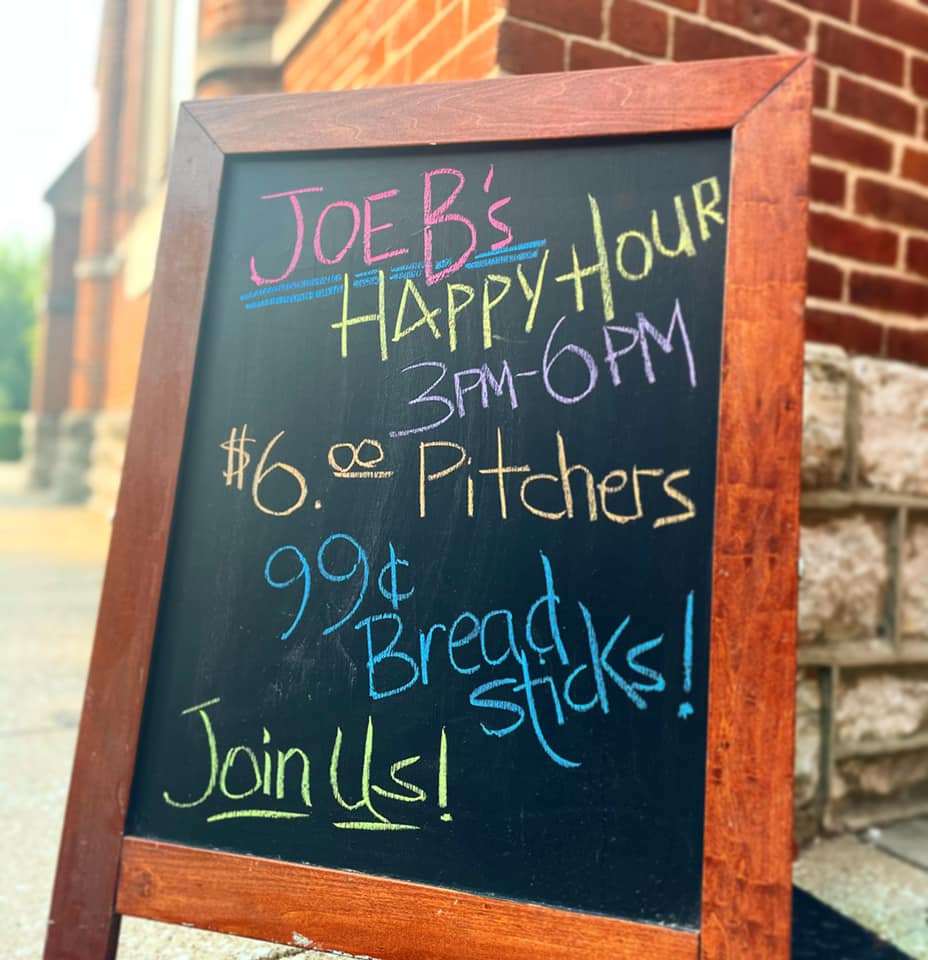 JOEB's
HAPPY HOUR
3PM-6PM
$6.00 Pitchers
99¢
Bread
sticks!
Join Us!